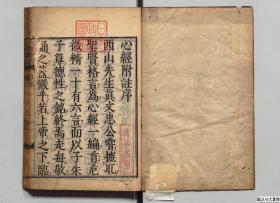 心經附註序
西山先生真文忠公嘗摭取
聖賢格言為心經一編首危
微精一十有六言而以子朱
子尊德性之銘終焉走每敬
誦之葢儼乎若上帝之下臨